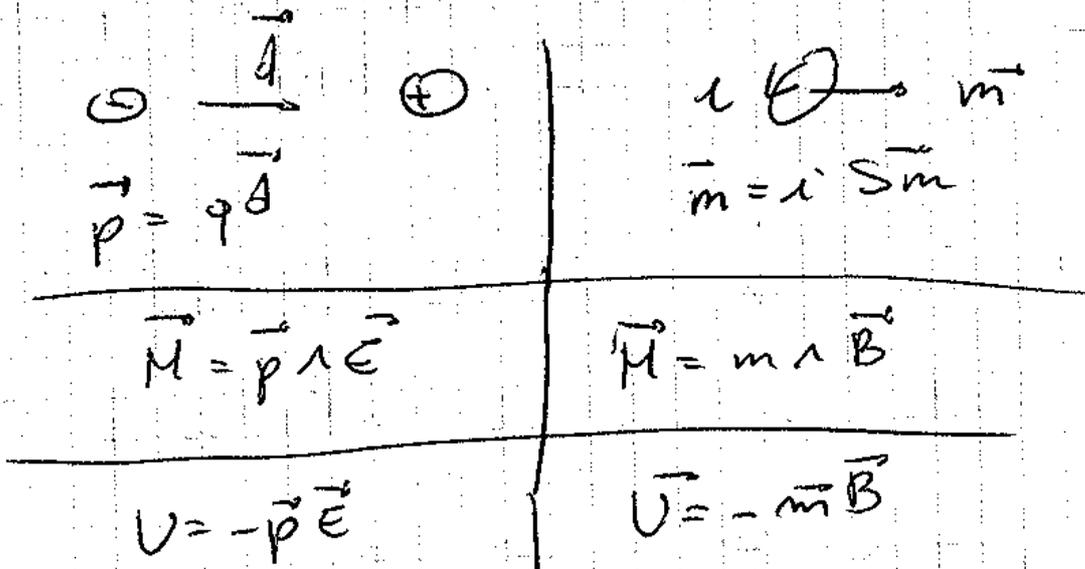 d⃗
⊖ → ⊕
p⃗ = q d⃗
i → m⃗
m⃗ = i S m⃗
M⃗ = p⃗ ∧ E⃗
M⃗ = m ∧ B⃗
U = -p⃗ E⃗
U⃗ = -m⃗ B⃗